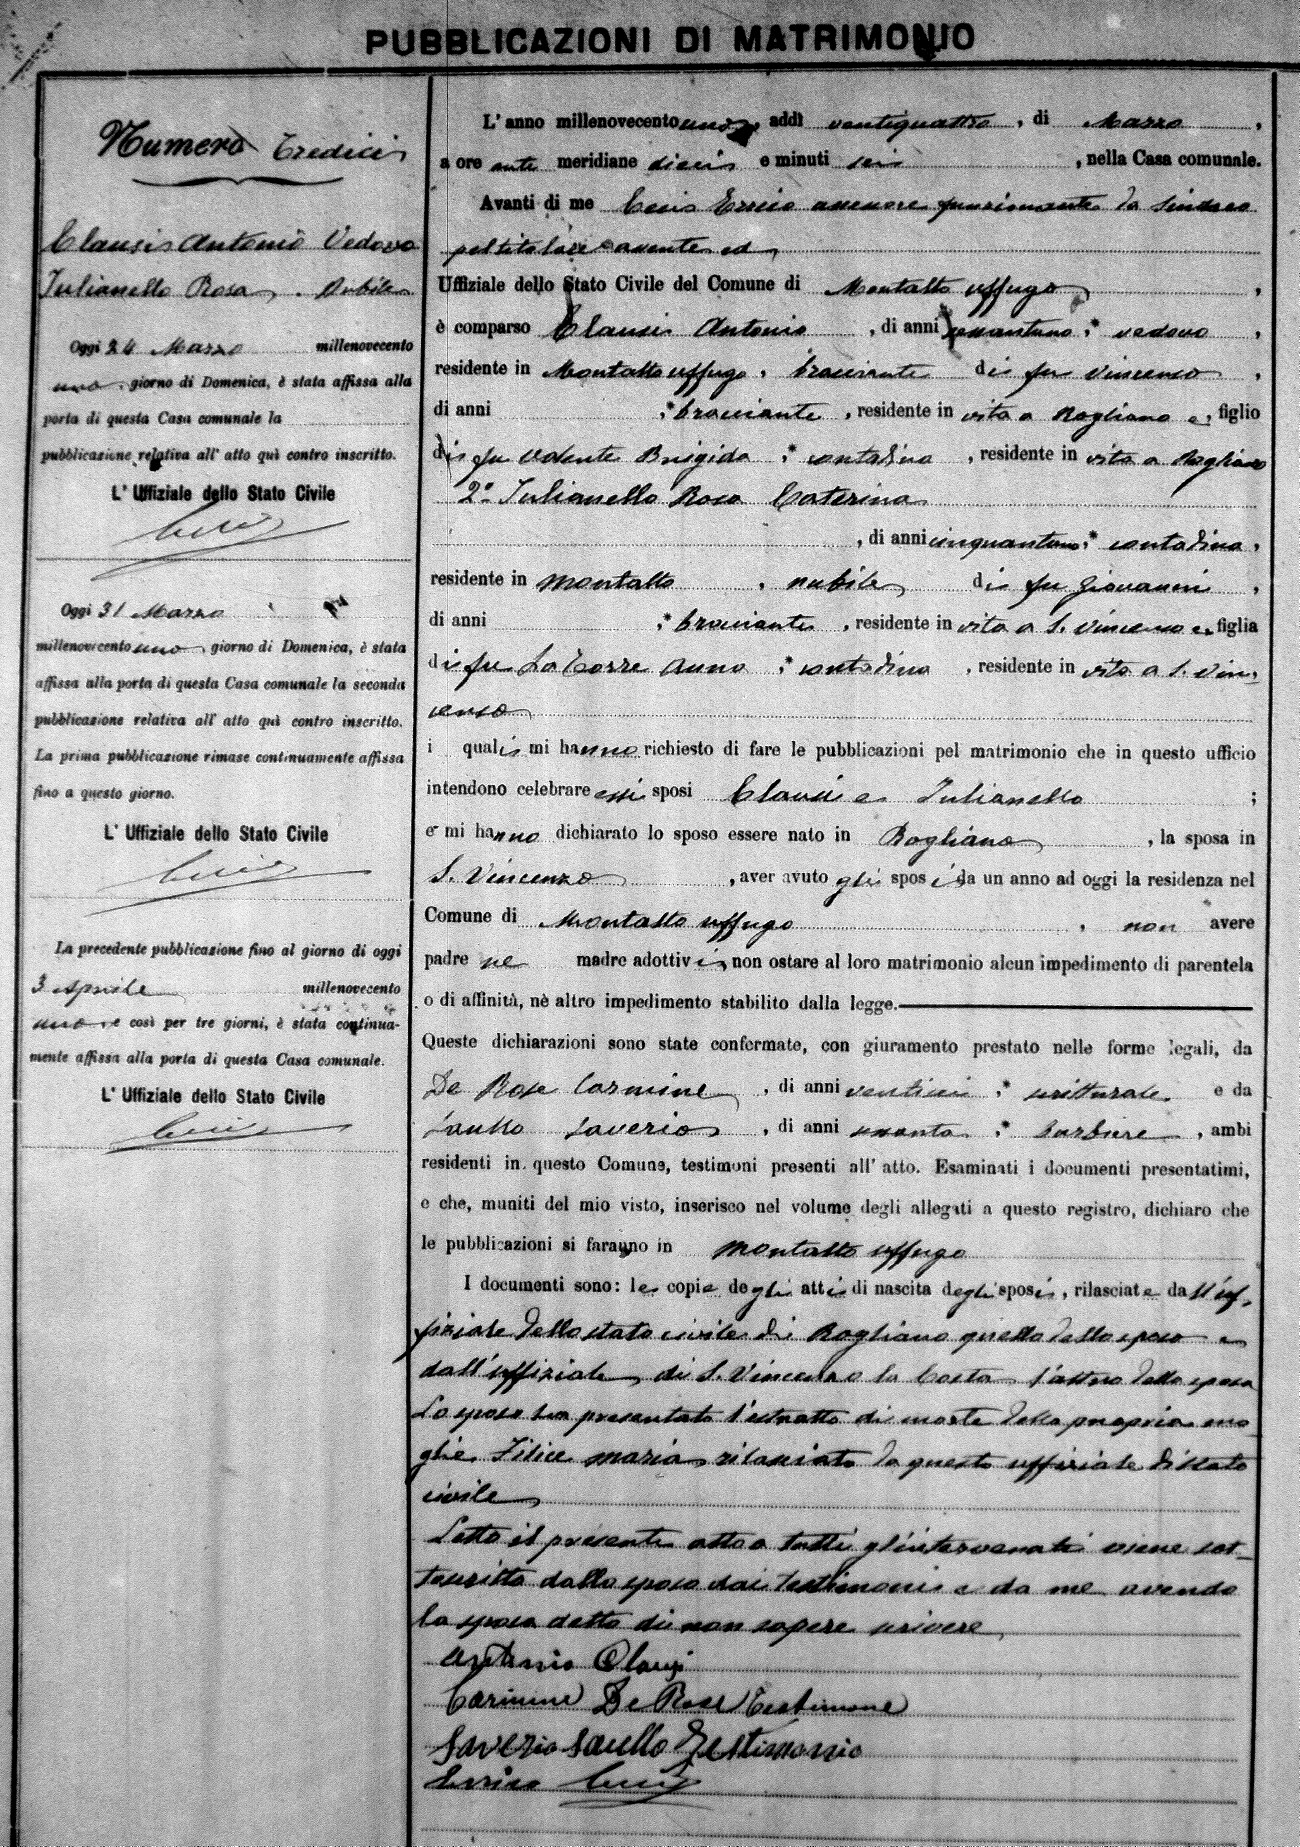 PUBBLICAZIONI DI MATRIMONIO
Numero Tredici
Clausi Antonio Vedovo
Iulianello Rosa. Nubile
Oggi 24 Marzo millenovecento
uno, giorno di Domenica, è stata affissa alla
porta di questa Casa comunale la
pubblicazione relativa all' atto quì contro inscritto.
L' Uffiziale dello Stato Civile
Oggi 31 Marzo
millenovecento uno, giorno di Domenica, è stata
affissa alla porta di questa Casa comunale la seconda
pubblicazione relativa all' atto quì contro inscritto.
La prima pubblicazione rimase continuamente affissa
fino a questo giorno.
L' Uffiziale dello Stato Civile
La precedente pubblicazione fino al giorno di oggi
3 Aprile millenovecento
uno e così per tre giorni, è stata continua-
mente affissa alla porta di questa Casa comunale.
L' Uffiziale dello Stato Civile
L' anno millenovecento uno, addì ventiquattro, di Marzo,
a ore ante meridiane dieci e minuti sei, nella Casa comunale.
Avanti di me Errico assessore funzionante da Sindaco
pel titolare assente ed
Uffiziale dello Stato Civile del Comune di Montalto Uffugo,
è comparso Clausi Antonio, di anni sessantuno, vedovo,
residente in Montalto Uffugo, bracciante di fu Vincenzo,
di anni , bracciante, residente in vita a Rogliano e, figlio
di fu Valente Brigida, contadina, residente in vita a Rogliano
2° Iulianello Rosa Caterina
, di anni cinquantuno, contadina,
residente in Montalto, nubile, di fu Giovanni,
di anni , bracciante, residente in vita a S. Vincenzo e, figlia
di fu La Torre Anna, contadina, residente in vita a S. Vin-
cenzo
i quali mi hanno richiesto di fare le pubblicazioni pel matrimonio che in questo ufficio
intendono celebrare essi sposi Clausi e Iulianello ;
e mi hanno dichiarato lo sposo essere nato in Rogliano, la sposa in
S. Vincenzo, aver avuto gli sposi da un anno ad oggi la residenza nel
Comune di Montalto Uffugo, non avere
padre ne madre adottivi, non ostare al loro matrimonio alcun impedimento di parentela
o di affinità, nè altro impedimento stabilito dalla legge.
Queste dichiarazioni sono state confermate, con giuramento prestato nelle forme legali, da
De Rose Carmine, di anni ventisei, scritturale e da
Saullo Saverio, di anni sessanta, barbiere, ambi
residenti in questo Comune, testimoni presenti all' atto. Esaminati i documenti presentatimi,
e che, muniti del mio visto, inserisco nel volume degli allegati a questo registro, dichiaro che
le pubblicazioni si faranno in Montalto Uffugo
I documenti sono: le copie degli atti di nascita degli sposi, rilasciate dall'uf-
fiziale dello stato civile di Rogliano quella dello sposo e
dall'uffiziale di S. Vincenzo la Costa l'altra della sposa
Lo sposo ha presentato l'estratto di morte della propria mo
glie Filice Maria rilasciato da questo uffiziale di stato
civile
Letto il presente atto a tutti gl'intervenuti viene sot-
toscritto dallo sposo dai testimoni e da me avendo
la sposa detto di non sapere scrivere
Antonio Clausi
Carmine De Rose Testimone
Saverio Saullo Testimonio
Errico